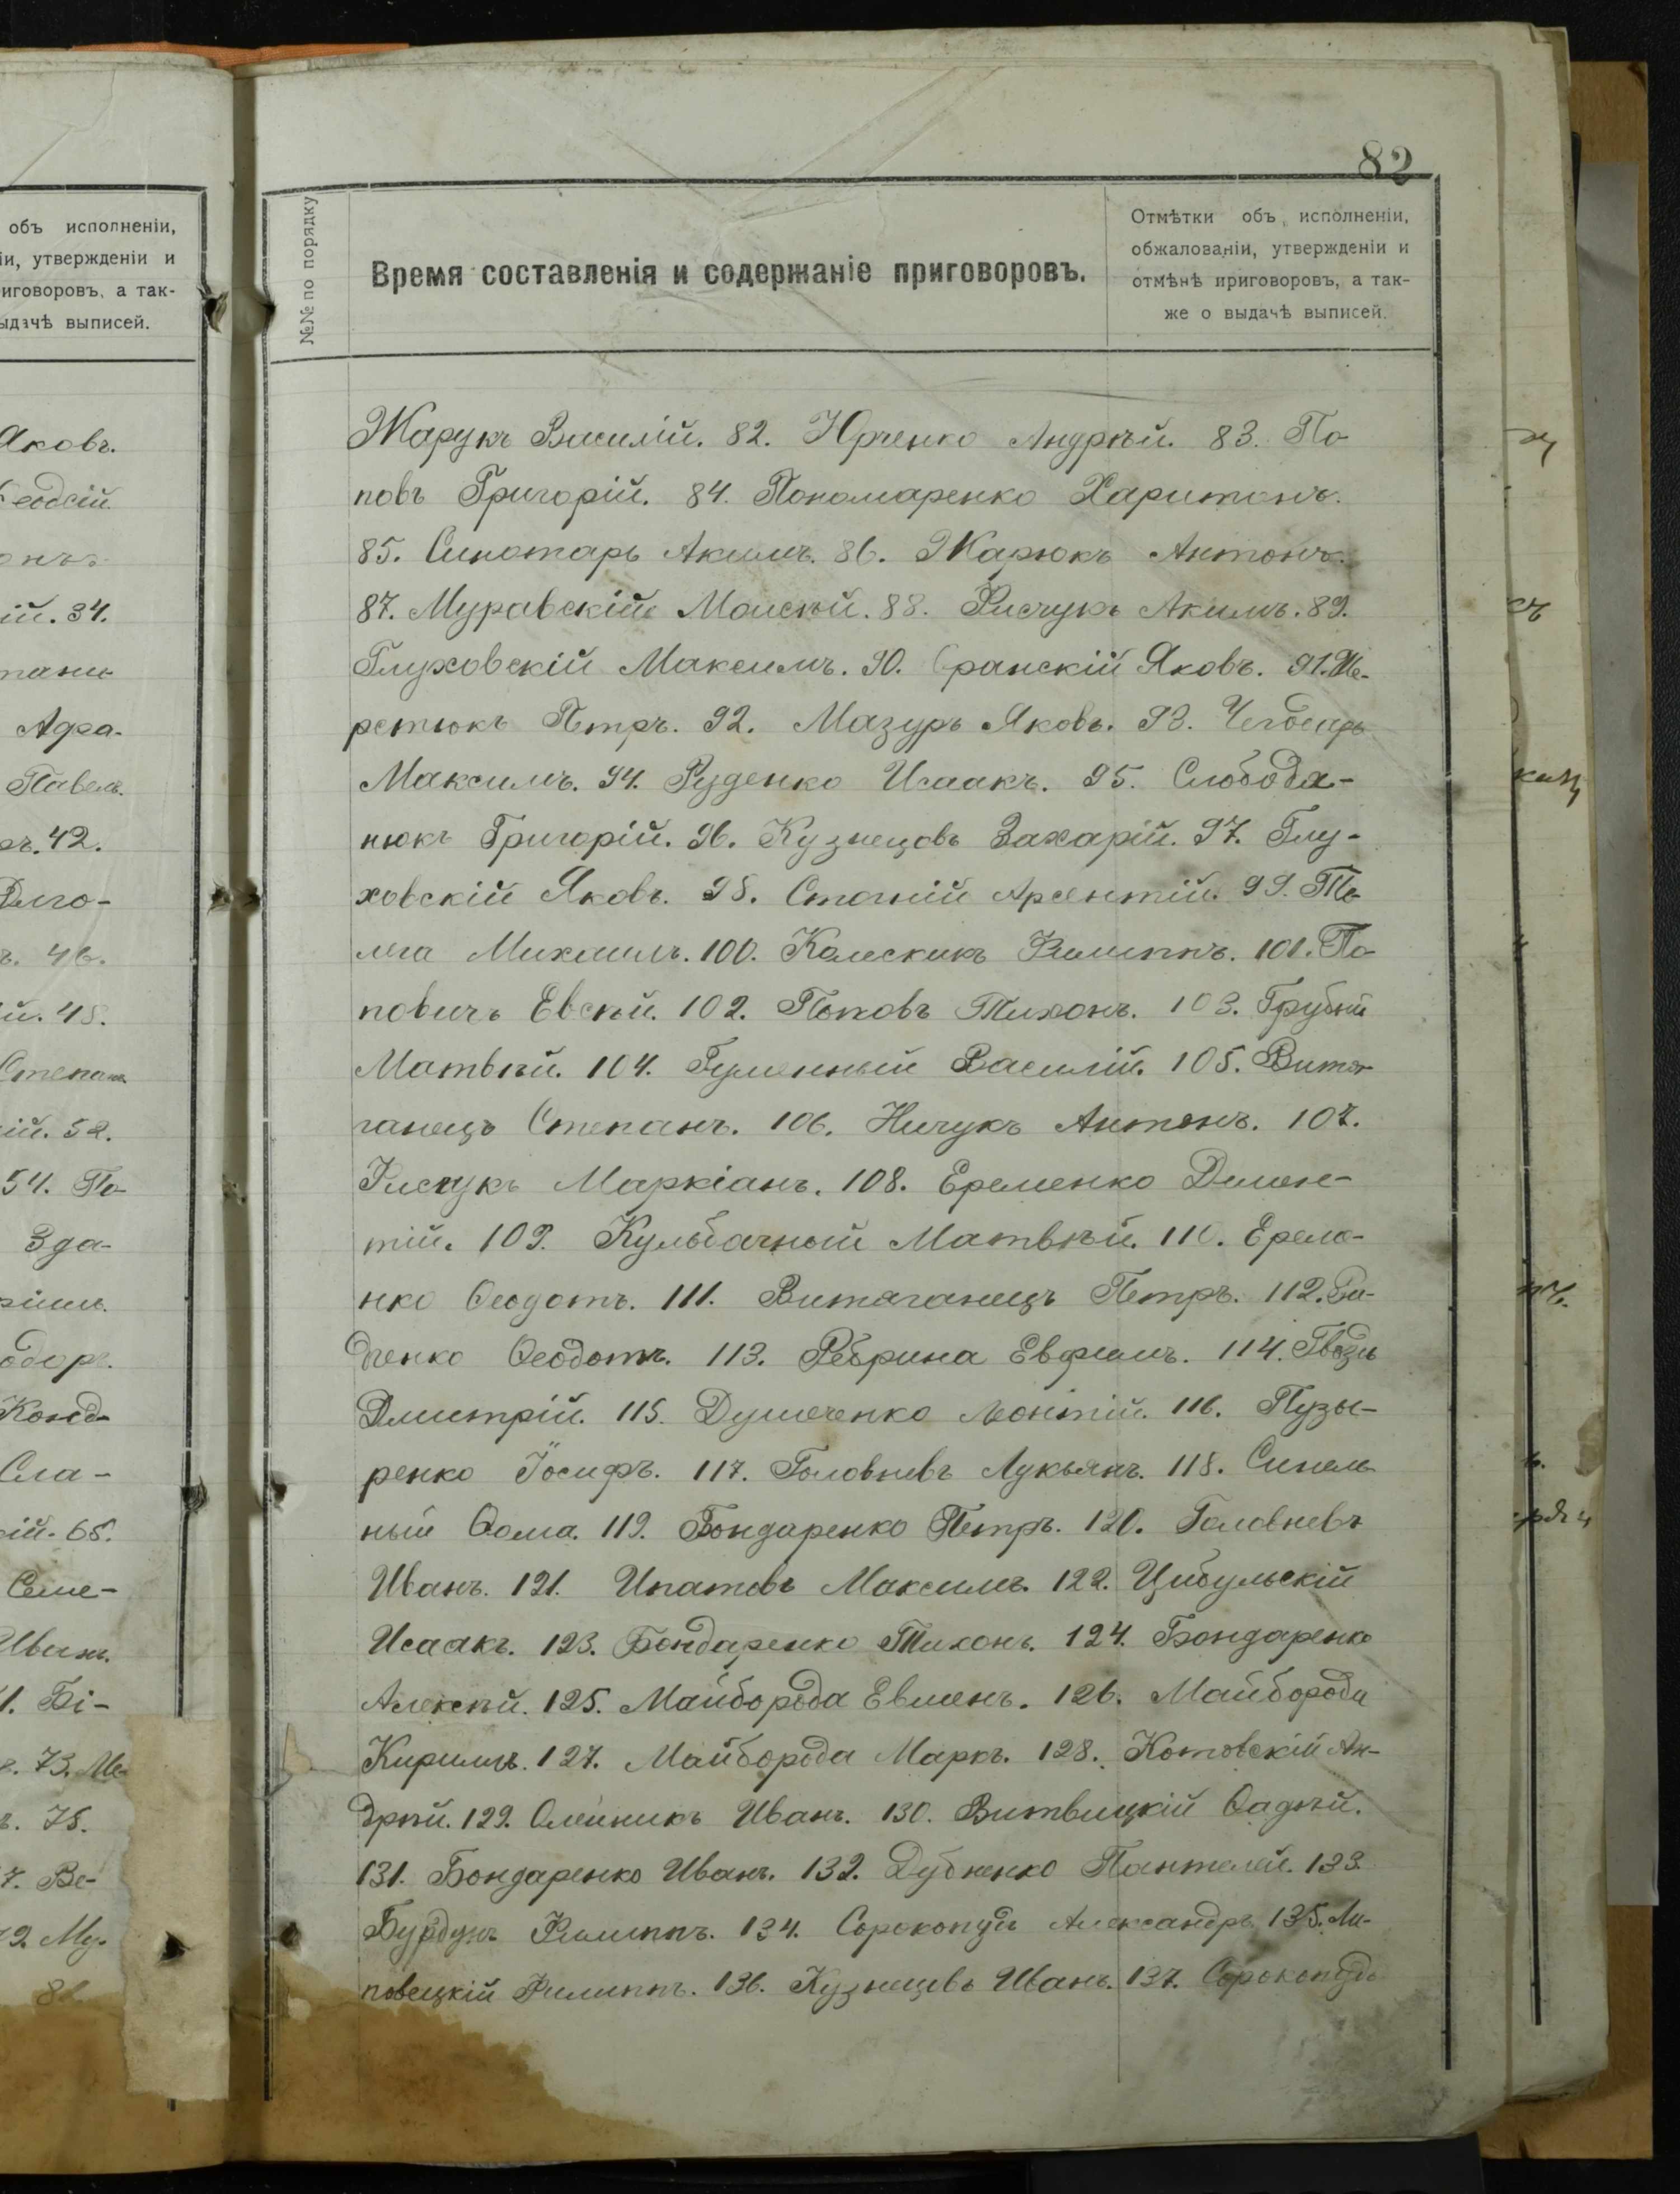 82
объ исполненіи,
іи, утвержденіи и
иговоровъ, а так-
ыдачѣ выписей.
Яковъ.
еодсій.
онъ.
ій. 34.
пани-
Афа-
Павелъ.
ръ. 42.
ъ. 46.
ій. 48.
Степанъ
ій. 52.
54. По-
Зда-
одоръ.
Сла-
ій. 65.
Семе-
Иванъ.
1. Бі-
73. Ме-
ъ. 75.
7. Ве-
79. Му-
№№ по порядку
Время составленія и содержаніе приговоровъ.
Отмѣтки объ исполненіи,
обжалованіи, утвержденіи и
отмѣнѣ приговоровъ, а так-
же о выдачѣ выписей.
Жарукъ Василій. 82. Юрченко Андрѣй. 83. По-
повъ Григорій. 84. Пономаренко Харитонъ.
85. Синотарь Акимъ. 86. Жарюкъ Антонъ.
87. Муравскій Моисѣй. 88. Фисчукъ Акимъ. 89.
Глуховскій Максимъ. 90. Сранскій Яковъ. 91. Ше-
рстюкъ Петръ. 92. Мазуръ Яковъ. 93. Чегбесарь
Максимъ. 94. Руденко Исаакъ. 95. Слобода-
нюкъ Григорій. 96. Кузнецовъ Захарій. 97. Глу-
ховскій Яковъ. 98. Стоній Арсентій. 99. Те-
лега Михаилъ. 100. Колесникъ Филиппъ. 101. По-
повичъ Евсѣй. 102. Поповъ Тихонъ. 103. Грубый
Матвѣй. 104. Гуменный Василій. 105. Витя-
ганецъ Степанъ. 106. Ничукъ Антонъ. 107.
Фисчукъ Маркіанъ. 108. Еременко Демен-
тій. 109. Кульбачный Матвѣй. 110. Ереме-
нко Ѳеодотъ. 111. Витяганецъ Петръ. 112. Ди-
дченко Ѳеодотъ. 113. Ребрина Евфимъ. 114. Гвоздь
Дмитрій. 115. Думченко Леонтій. 116. Пузы-
ренко Іосифъ. 117. Головневъ Лукьянъ. 118. Синель-
ный Ѳома. 119. Бондаренко Петръ. 120. Головневъ
Иванъ. 121. Ипатовъ Максимъ. 122. Цибульскій
Исаакъ. 123. Бондаренко Тихонъ. 124. Бондаренко
Алексѣй. 125. Майборода Евменъ. 126. Майборода
Кириллъ. 127. Майборода Маркъ. 128. Котовскій Ан-
дрѣй. 129. Олейникъ Иванъ. 130. Витвицкій Ѳадѣй.
131. Бондаренко Иванъ. 132. Дубненко Пантелей. 133.
Бурдунъ Филиппъ. 134. Сорокопудъ Александръ. 135. Ли-
повецкій Филиппъ. 136. Кузнецовъ Иванъ. 137. Сорокопудъ